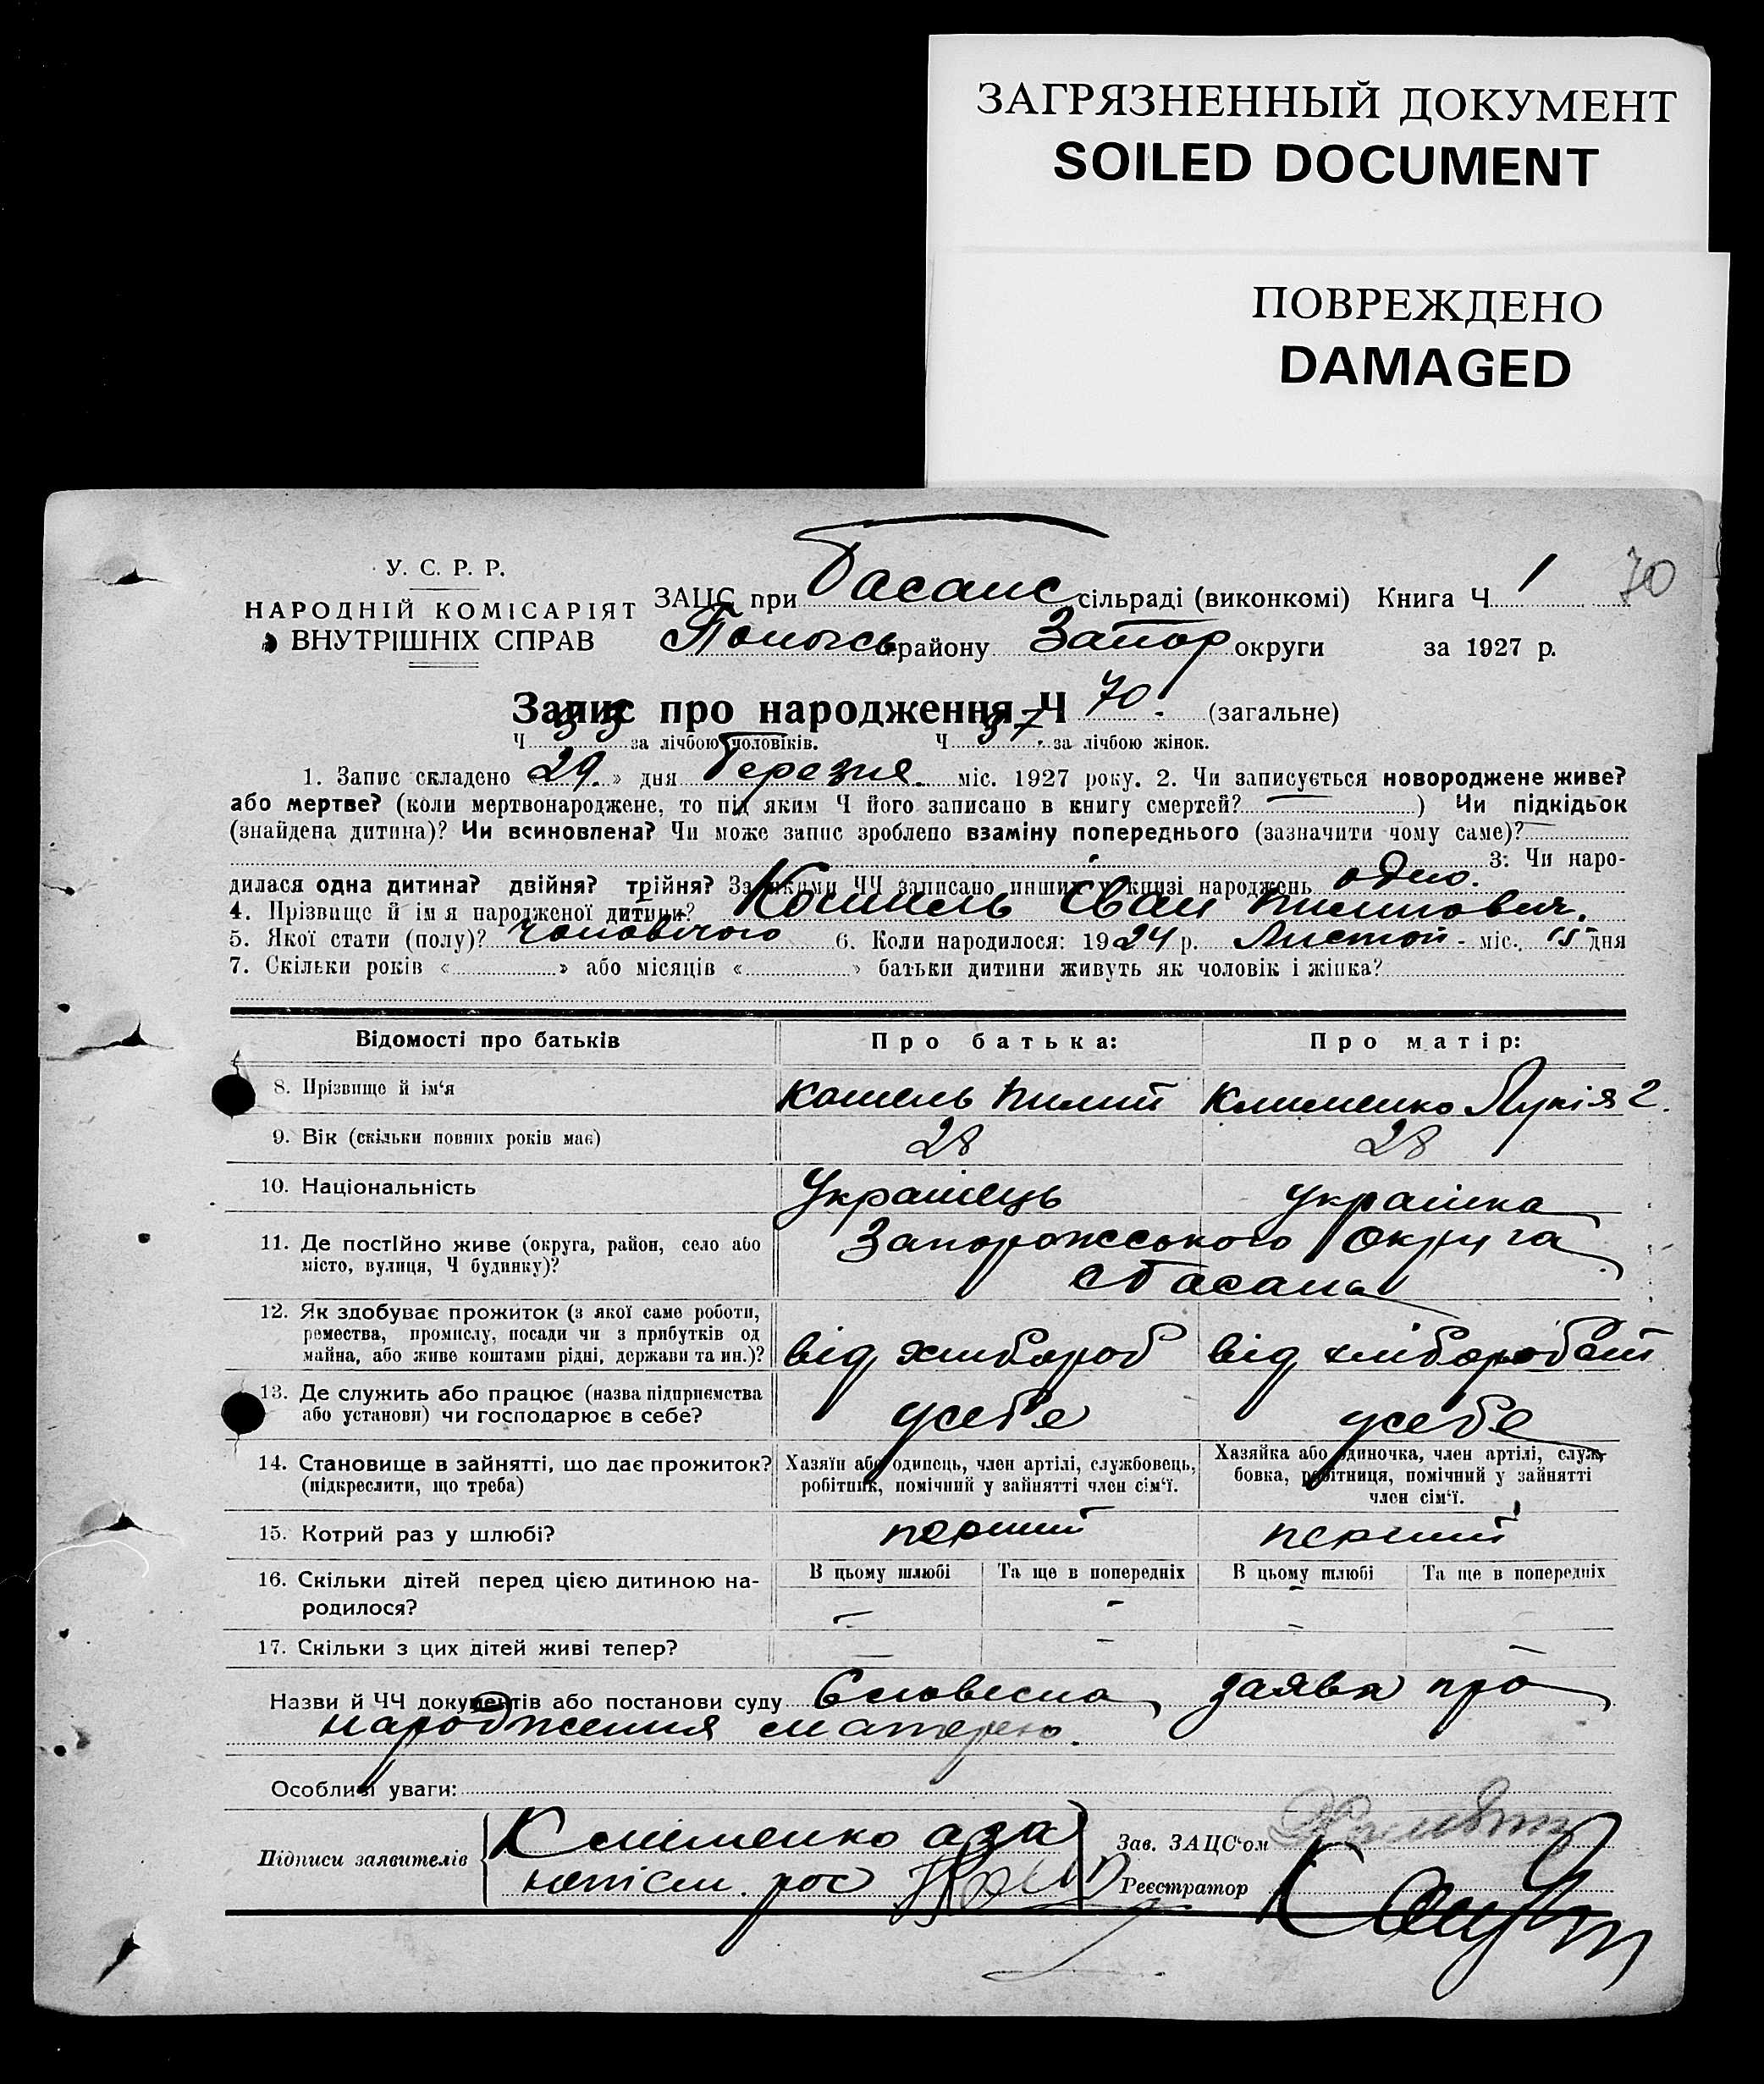 ЗАГРЯЗНЕННЫЙ ДОКУМЕНТ
SOILED DOCUMENT
ПОВРЕЖДЕНО
DAMAGED
У. С. Р. Р.
НАРОДНІЙ КОМІСАРІЯТ
ВНУТРІШНІХ СПРАВ
ЗАЦС при Басанс сільраді (виконкомі) Книга Ч 1 70
району Запор округи за 1927 р.
Запис про народження Ч 70. (загальне)
Ч 33 за лічбою чоловіків. Ч 37 за лічбою жінок.
1. Запис складено «29» дня березня міс. 1927 року. 2. Чи записується новороджене живе?
або мертве? (коли мертвонароджене, то під яким Ч його записано в книгу смертей? — ) Чи підкідьок
(знайдена дитина)? Чи всиновлена? Чи може запис зроблено взаміну попереднього (зазначити чому саме)? —
3: Чи наро-
дилася одна дитина? двійня? трійня? За якими ЧЧ записано инших у книзі народжень одно.
4. Прізвище й ім'я народженої дитини? Кошель Іван Пилипович.
5. Якої стати (полу)? чоловічого 6. Коли народилося: 1924 р. Листоп - міс. 15 дня
7. Скільки років « » або місяців « » батьки дитини живуть як чоловік і жінка?
Відомості про батьків Про батька: Про матір:
8. Прізвище й ім'я Кошель Пилип Клименко Лукія Г.
9. Вік (скільки повних років має) 28 28
10. Національність Українець Українка
11. Де постійно живе (округа, район, село або Запорожського Округа
місто, вулиця, Ч будинку)? с Басань
12. Як здобуває прожиток (з якої саме роботи,
ремества, промислу, посади чи з прибутків од
майна, або живе коштами рідні, держави та ин.)? від хлібороб від хліборобст
13. Де служить або працює (назва підприємства
або установи) чи господарює в себе? усебе усебе
14. Становище в зайнятті, що дає прожиток? Хазяїн або одинець, член артілі, службовець, Хазяйка або одиночка, член артілі, служ-
(підкреслити, що треба) робітник, помічний у зайнятті член сім'ї. бовка, робітниця, помічний у зайнятті
член сім'ї.
15. Котрий раз у шлюбі? перший перший
16. Скільки дітей перед цією дитиною на- В цьому шлюбі Та ще в попередніх В цьому шлюбі Та ще в попередніх
родилося? — — —
17. Скільки з цих дітей живі тепер? — — — —
Назви й ЧЧ документів або постанови суду Словесна заява про
народження матерею.
Особливі уваги:
Підписи заявителів Клименко а за
непісм. рос
Зав. ЗАЦС'ом
Реєстратор